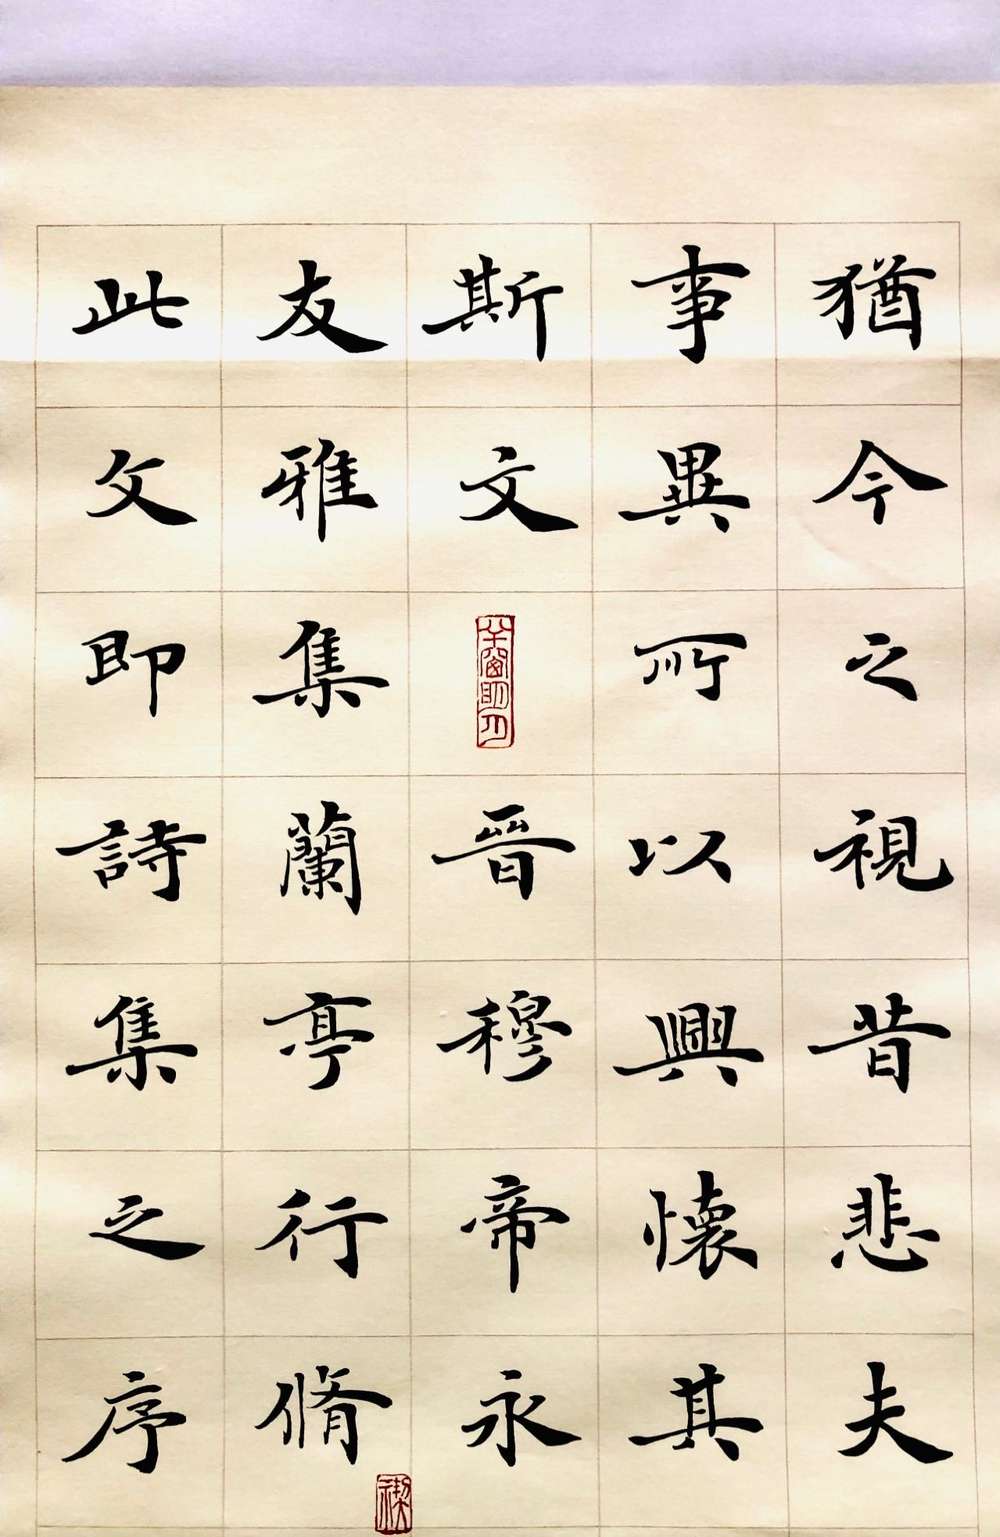 猶今之視昔悲夫
事異所以興懷其
斯文
半窗明月
晉穆帝永
友雅集蘭亭行脩
禊
此文即詩集之序